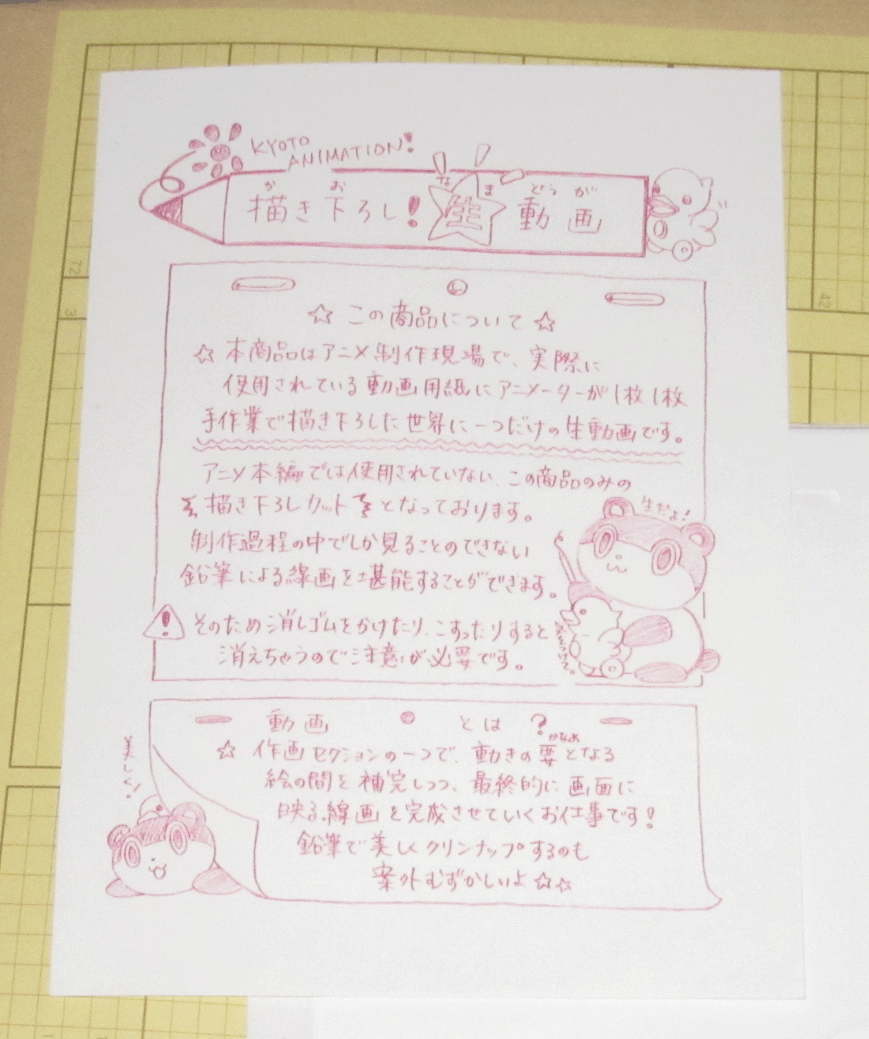 KYOTO
ANIMATION!
描き下ろし! 生動画
か お なま どうが
☆ この商品について ☆
☆ 本商品はアニメ制作現場で、実際に
使用されている動画用紙にアニメーターが1枚1枚
手作業で描き下ろした世界に一つだけの生動画です。
アニメ本編では使用されていない、この商品のみの
描き下ろしカットとなっております。
生だよ!
制作過程の中でしか見ることのできない
鉛筆による線画を堪能することができます。
気をつけて。
そのため消しゴムをかけたり、こすったりすると
消えちゃうので注意が必要です。
動画とは?
かなめ
☆ 作画セクションの一つで、動きの要となる
絵の間を補完しつつ、最終的に画面に
映る線画を完成させていくお仕事です!
鉛筆で美しくクリンナップするのも
案外むずかしいよ☆☆
美しく!
72
3
42